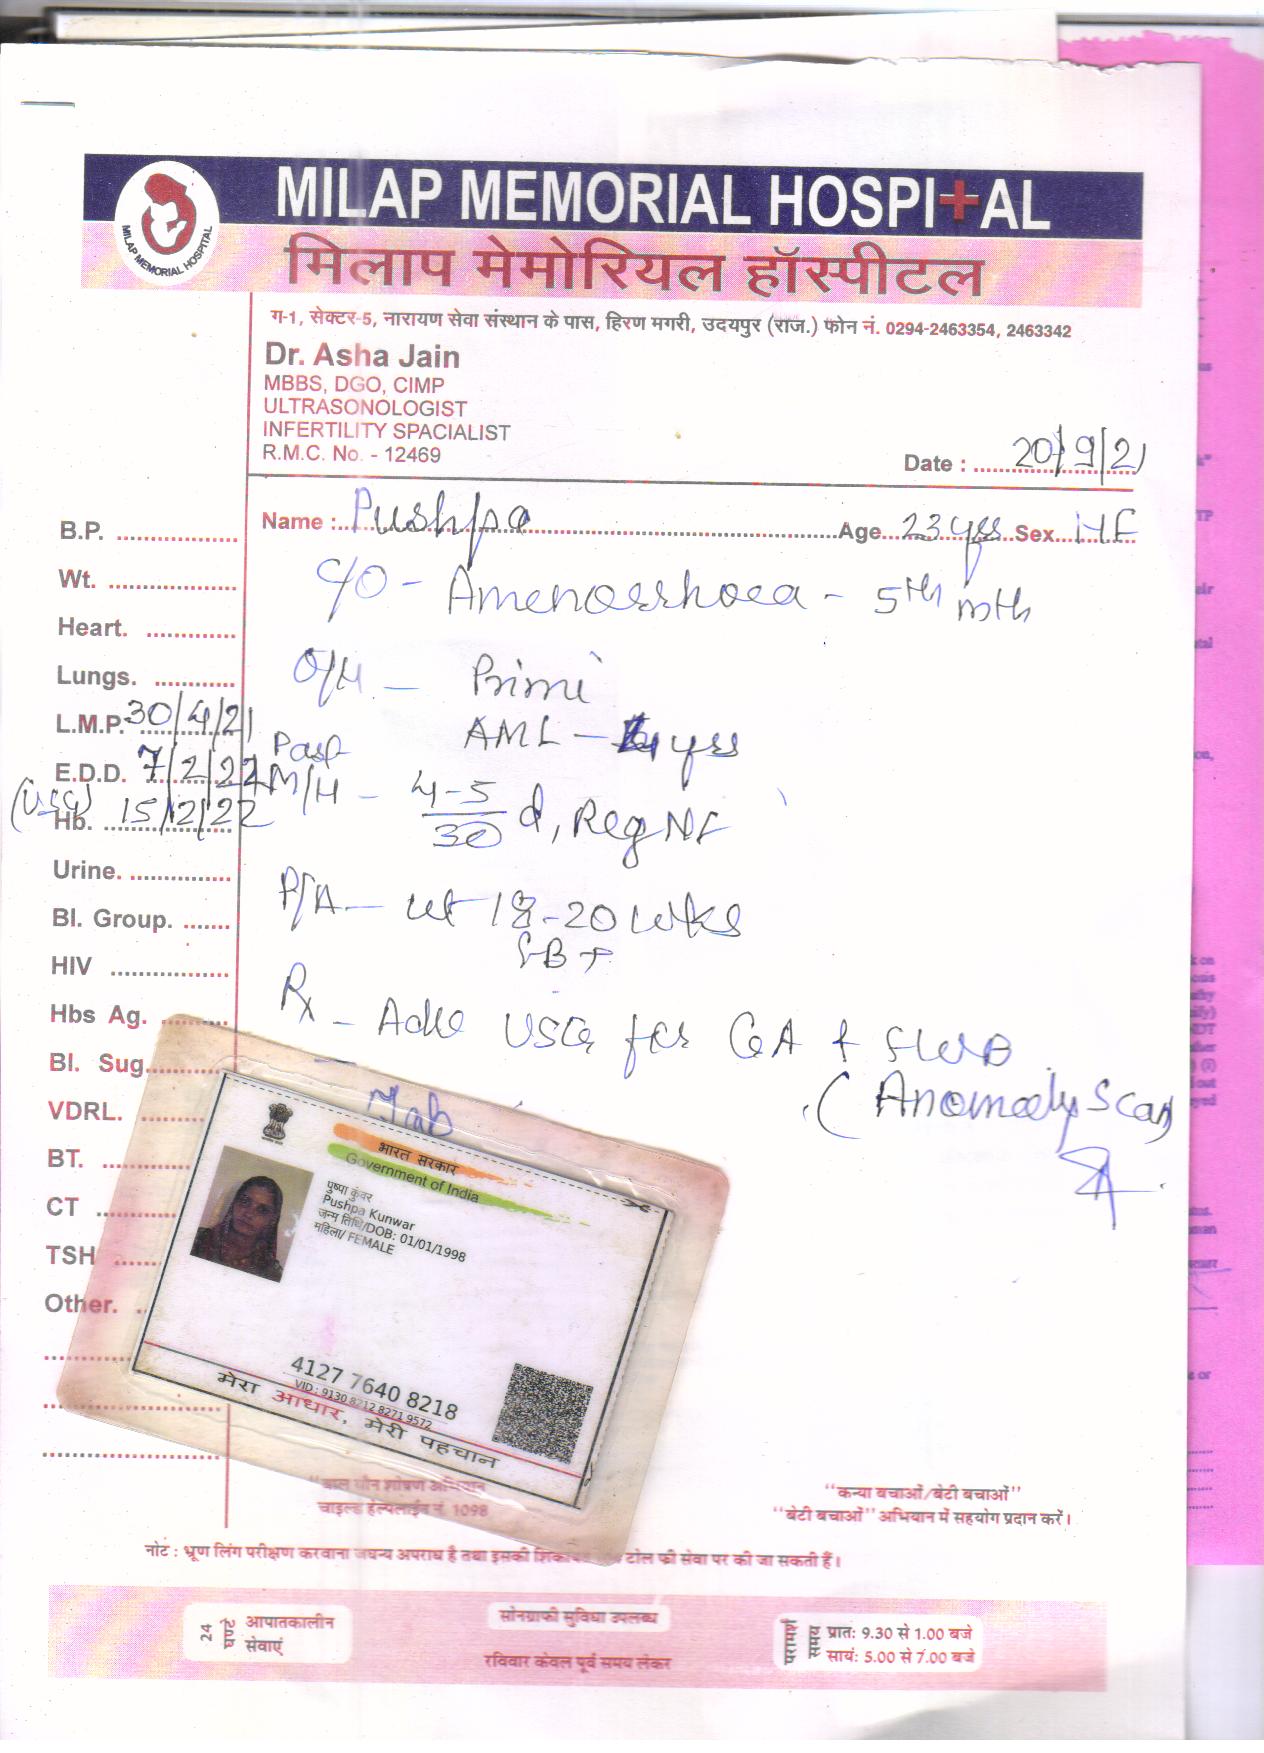 MILAP MEMORIAL HOSPITAL
मिलाप मेमोरियल हॉस्पीटल
MILAP MEMORIAL HOSPITAL
ग-1, सेक्टर-5, नारायण सेवा संस्थान के पास, हिरण मगरी, उदयपुर (राज.) फोन नं. 0294-2463354, 2463342
Dr. Asha Jain
MBBS, DGO, CIMP
ULTRASONOLOGIST
INFERTILITY SPACIALIST
R.M.C. No. - 12469
Date : 20/9/21
Name : Pushpa Age 23 yrs Sex
B.P.
Wt.
Heart.
Lungs.
L.M.P. 30/4/21
E.D.D. 7/2/22
(USG) 15/2/22
Hb.
Urine.
Bl. Group.
HIV
Hbs Ag.
Bl. Sug.
VDRL.
BT.
CT
TSH
Other.
C/O - Amenorrhoea - 5th mth
O/H - Primi
AML - yrs
Past
M/H - 4-5/30 d, Reg NF
P/A - ut 18-20 wks
FB +
Rx - Adv USG for GA & FWB
(Anomaly Scan)
Tab
भारत सरकार
Government of India
पुष्पा कुंवर
Pushpa Kunwar
जन्म तिथि/DOB: 01/01/1998
महिला/ FEMALE
4127 7640 8218
VID : 9130 8212 8271 9572
मेरा आधार, मेरी पहचान
"बाल यौन शोषण अभियान
चाइल्ड हेल्पलाईन नं. 1098
"कन्या बचाओं/बेटी बचाओं"
"बेटी बचाओं" अभियान में सहयोग प्रदान करें।
नोटं : भ्रूण लिंग परीक्षण करवाना जघन्य अपराध है तथा इसकी टोल फ्री सेवा पर की जा सकती हैं।
24 घण्टे आपातकालीन सेवाएं
सोनोग्राफी सुविधा उपलब्ध
रविवार केवल पूर्व समय लेकर
परामर्श समय
प्रात: 9.30 से 1.00 बजे
सायं: 5.00 से 7.00 बजे